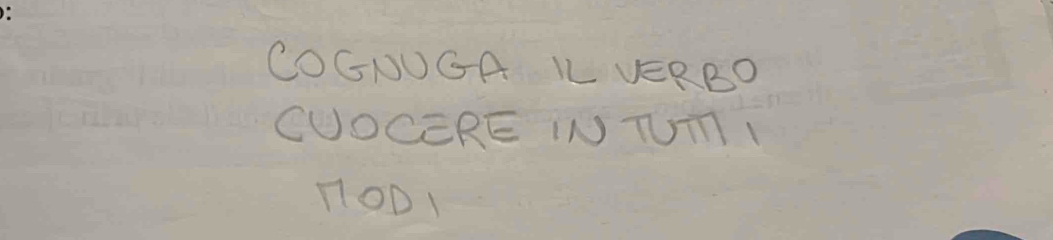 :
COGNUGA IL VERBO
CUOCERE IN TUTTI I
MODI